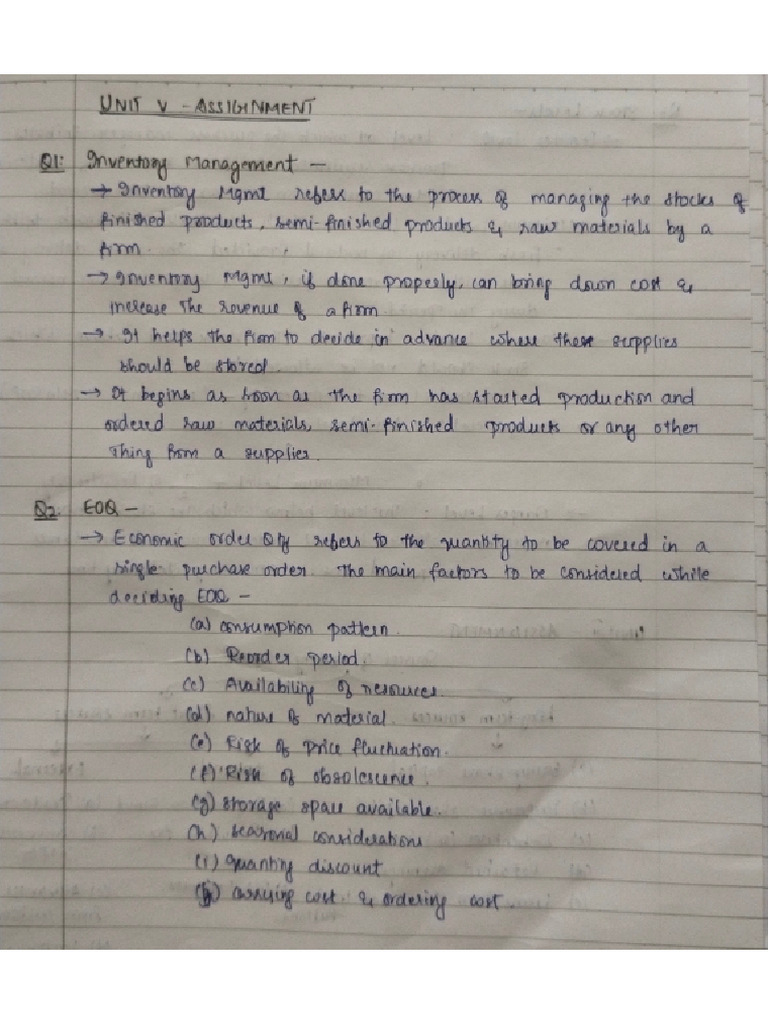 UNIT V - ASSIGNMENT
Q1: Inventory Management –
→ Inventory Mgmt refers to the process of managing the stocks of
finished products, semi-finished products & raw materials by a
firm.
→ Inventory Mgmt, if done properly, can bring down cost &
increase the revenue of a firm
→ It helps the firm to decide in advance where these supplies
should be stored.
→ It begins as soon as the firm has started production and
ordered raw materials, semi-finished products or any other
thing from a supplies.
Q2. EOQ –
→ Economic order Qty refers to the quantity to be covered in a
single purchase order. The main factors to be considered while
deciding EOQ –
(a) consumption pattern.
(b) Reorder period.
(c) Availability of resources.
(d) nature of material.
(e) Risk of price fluctuation.
(f) Risk of obsolescence.
(g) storage space available.
(h) seasonal considerations
(i) quantity discount
(j) carrying cost & ordering cost.